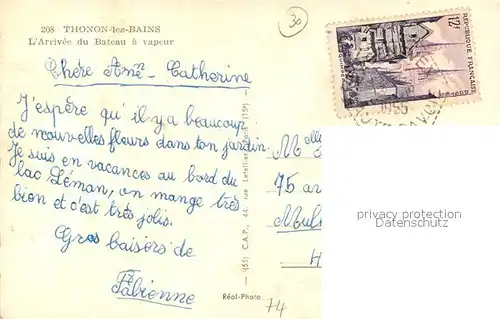 208 THONON-lez-BAINS
L'Arrivée du Bateau à vapeur
30
12f
RÉPUBLIQUE FRANÇAISE
Chère Anne-Catherine
J'espère qu'il y a beaucoup
de nouvelles fleurs dans ton jardin.
Je suis en vacances au bord du
lac Léman, on mange très
bien et c'est très joli.
Gros baisers de
Fabienne
C.A.P., 44, rue Letellier, Paris (15e)
Réal-Photo
74
Mlle
75 a
Mul
H
privacy protection
Datenschutz